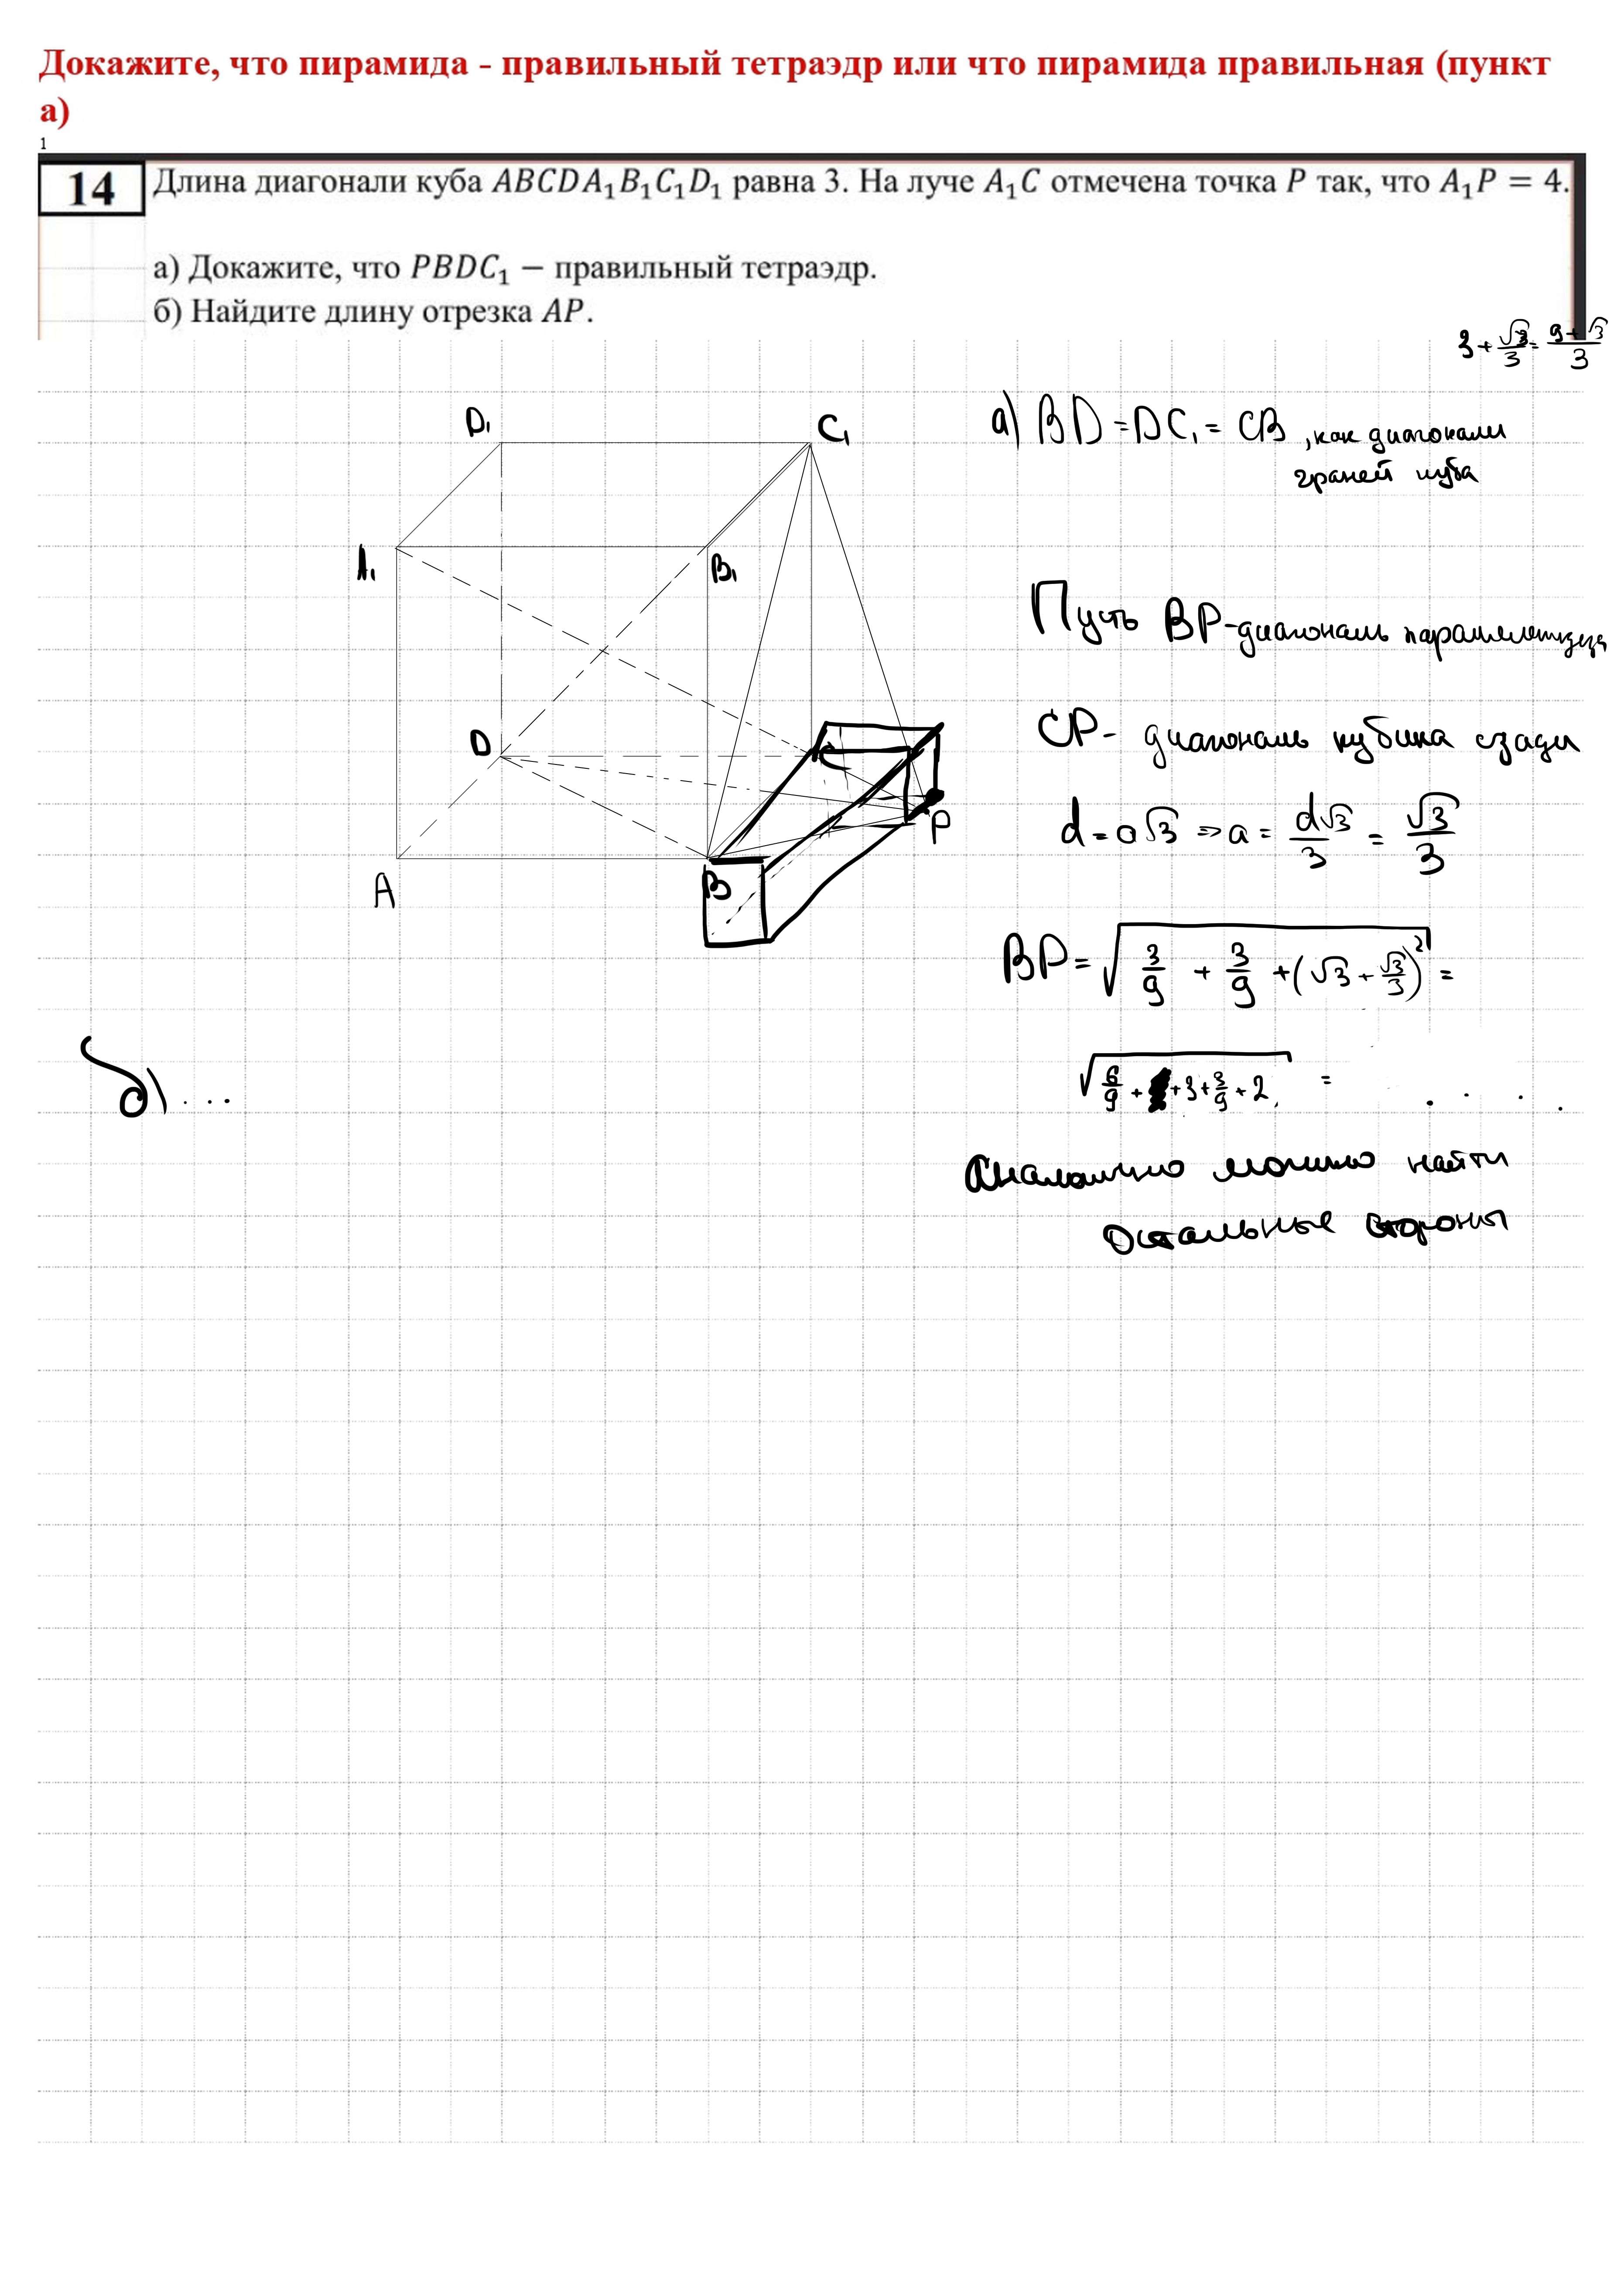 Докажите, что пирамида - правильный тетраэдр или что пирамида правильная (пункт
а)
1
14 Длина диагонали куба ABCDA₁B₁C₁D₁ равна 3. На луче A₁C отмечена точка P так, что A₁P = 4.
а) Докажите, что PBDC₁ − правильный тетраэдр.
б) Найдите длину отрезка AP.
3 + √3/3 = 9+√3/3
D₁
C₁
A₁
B₁
D
C
P
A
B
а) BD = DC₁ = CB, как диагонали
граней куба
Пусть BP - диагональ параллелепипеда
CP - диагональ кубика сзади
d = a√3 ⇒ a = d√3/3 = √3/3
BP = √(3/9 + 3/9 + (√3 + √3/3)²) =
√(6/9 + + 3 + 3/9 + 2) = . . . .
Аналогично можно найти
остальные стороны
б) ...